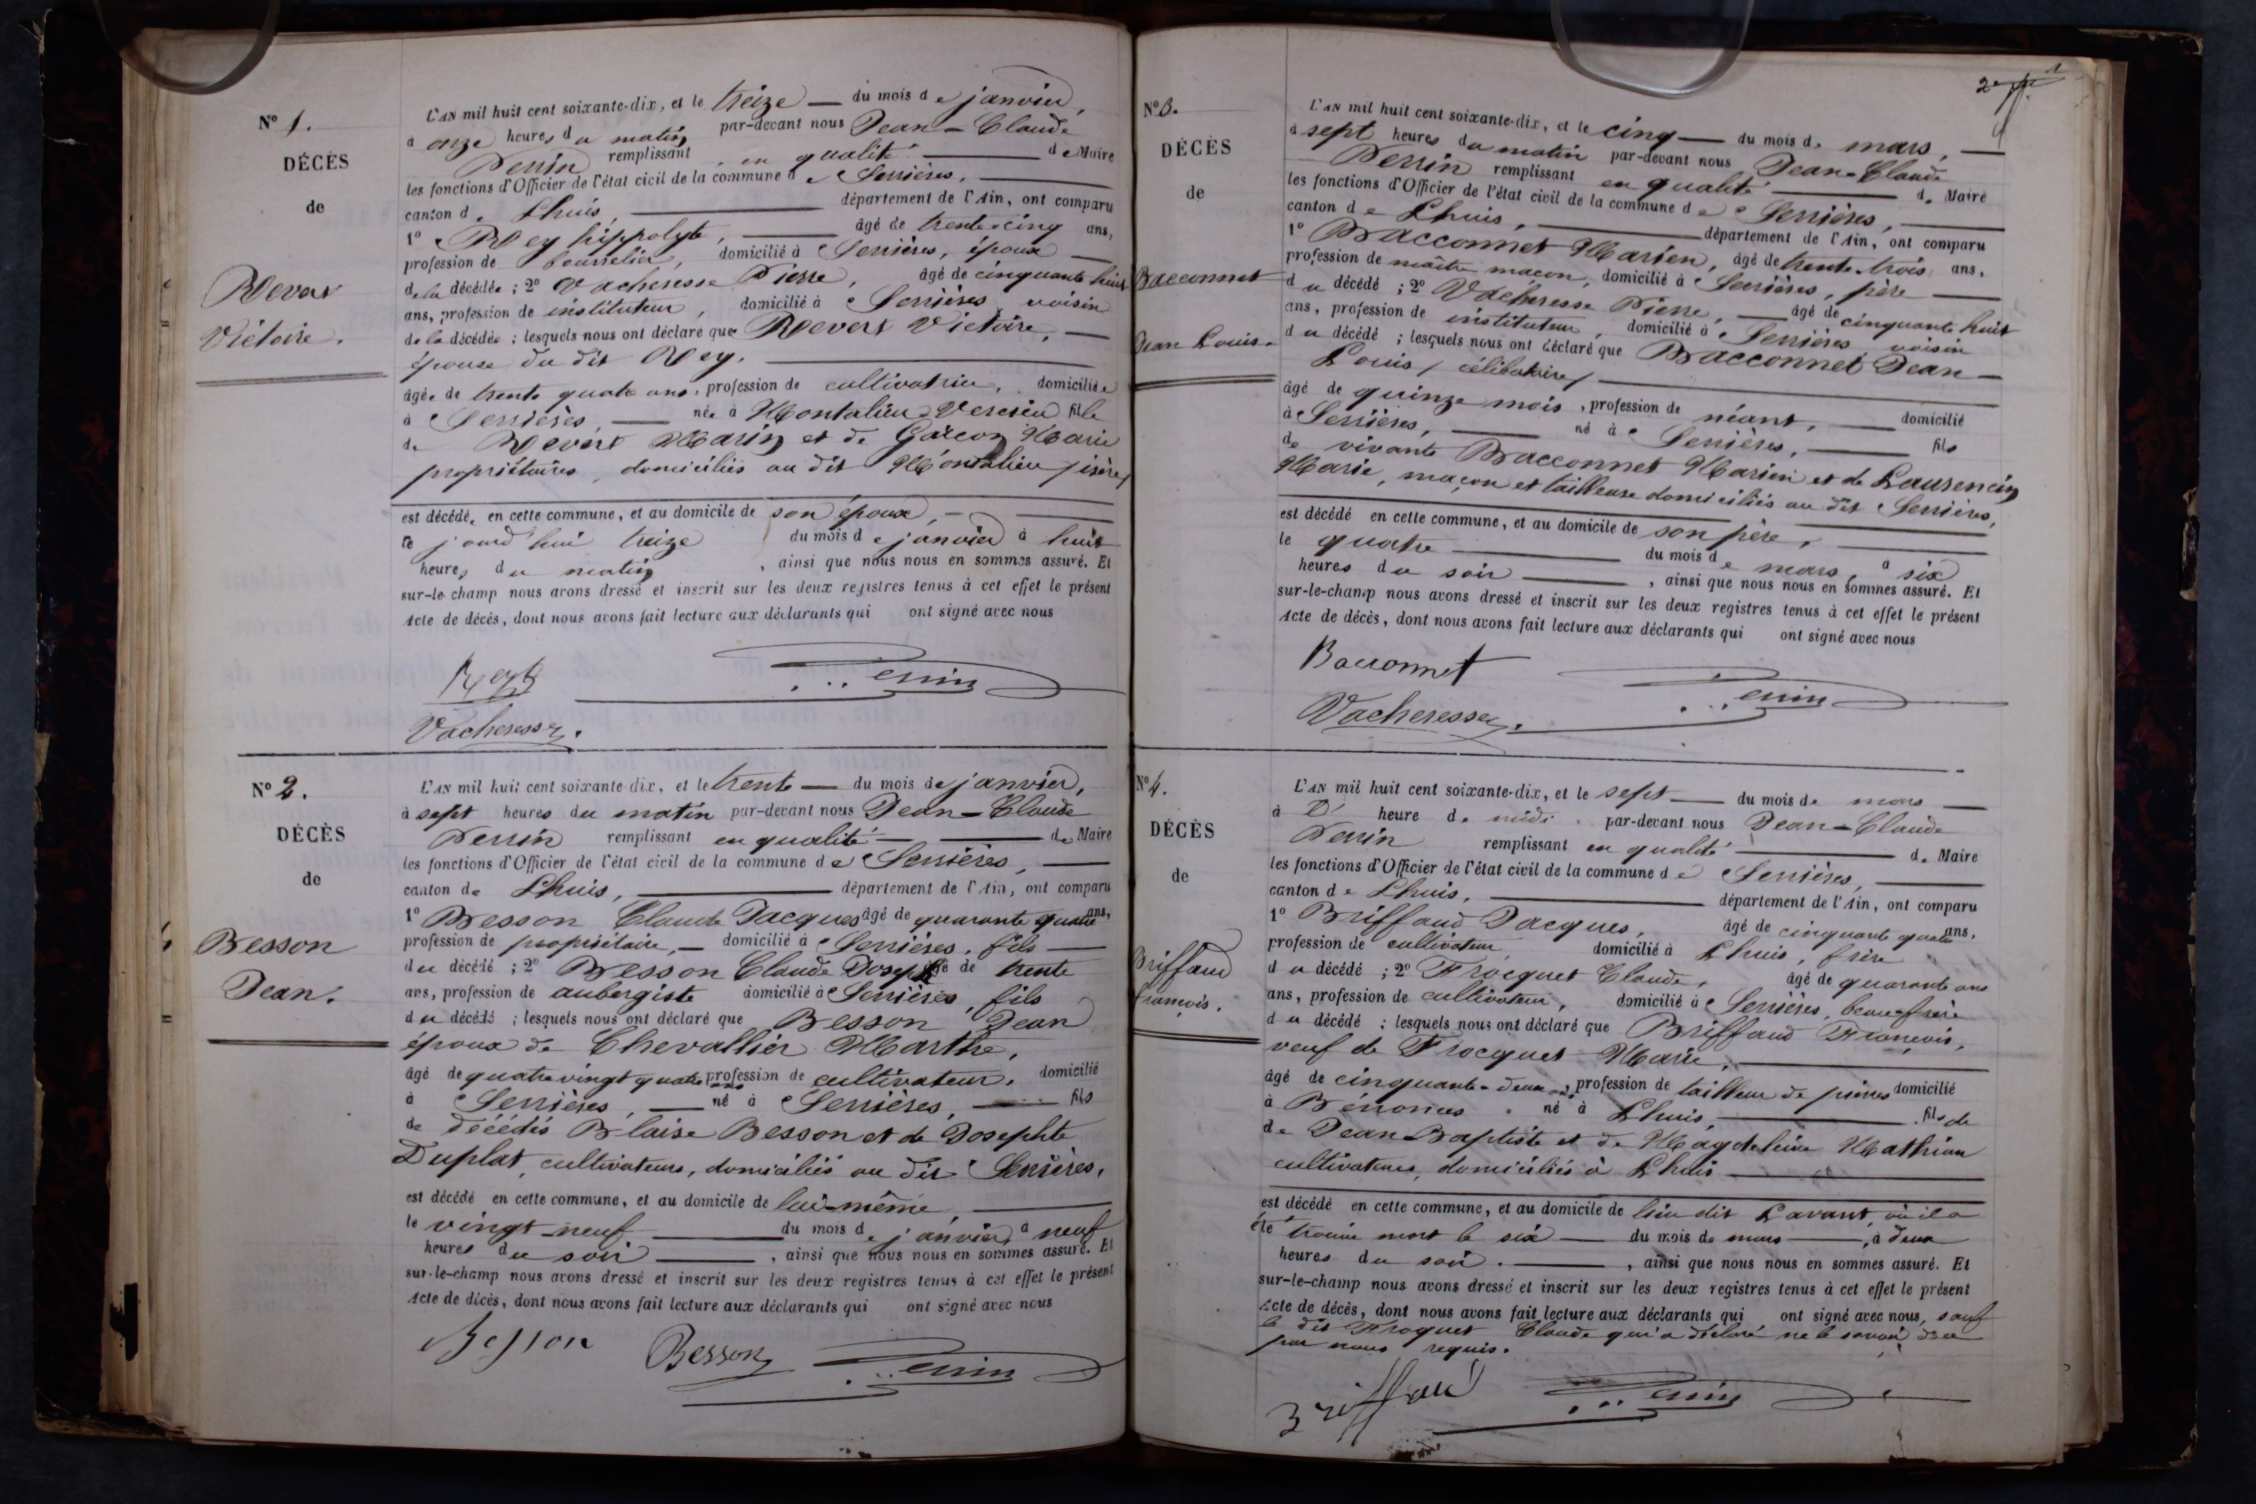 N° 1.
DÉCÈS
de
Revert
Victoire.
L'AN mil huit cent soixante-dix, et le treize du mois de janvier,
à onze heures du matin par-devant nous Jean-Claude
Perrin remplissant en qualité de Maire
les fonctions d'Officier de l'état civil de la commune de Serrières,
canton de Lhuis, département de l'Ain, ont comparu
1° Rey hippolyte, âgé de trente-cinq ans,
profession de bourrelier, domicilié à Serrières, époux
de la décédée ; 2° Vacheresse Pierre, âgé de cinquante huit
ans, profession de instituteur, domicilié à Serrières voisin
de la décédée ; lesquels nous ont déclaré que Revert Victoire,
épouse du dit Rey.
âgée de trente quatre ans, profession de cultivatrice, domiciliée
à Serrières, née à Montalieu-Vercieu fille
de Revert Marin et de Garcon Marie
propriétaires, domiciliés au dit Montalieu (isère)
est décédée en cette commune, et au domicile de son époux,
le jourd'hui treize du mois de janvier à huit
heures du matin, ainsi que nous nous en sommes assuré. Et
sur-le-champ nous avons dressé et inscrit sur les deux registres tenus à cet effet le présent
Acte de décès, dont nous avons fait lecture aux déclarants qui ont signé avec nous
Rey Perrin
Vacheresse.
N° 2.
DÉCÈS
de
Besson
Jean.
L'AN mil huit cent soixante-dix, et le trente du mois de janvier,
à sept heures du matin par-devant nous Jean-Claude
Perrin remplissant en qualité de Maire
les fonctions d'Officier de l'état civil de la commune de Serrières,
canton de Lhuis, département de l'Ain, ont comparu
1° Besson Claude Jacques âgé de quarante quatre ans,
profession de propriétaire, domicilié à Serrières, fils
du décédé ; 2° Besson Claude Joseph âgé de trente
ans, profession de aubergiste domicilié à Serrières, fils
du décédé ; lesquels nous ont déclaré que Besson Jean
époux de Chevallier Marthe,
âgé de quatre vingt quatre ans profession de cultivateur, domicilié
à Serrières, né à Serrières, fils
de décédés Blaise Besson et de Josephte
Duplat, cultivateurs, domiciliés au dit Serrières,
est décédé en cette commune, et au domicile de lui-même,
le vingt-neuf du mois de janvier, à neuf
heures du soir, ainsi que nous nous en sommes assuré. Et
sur-le-champ nous avons dressé et inscrit sur les deux registres tenus à cet effet le présent
Acte de décès, dont nous avons fait lecture aux déclarants qui ont signé avec nous
Besson Besson Perrin
N° 3.
DÉCÈS
de
Bacconnet
Jean Louis.
L'AN mil huit cent soixante-dix, et le cinq du mois de mars,
à sept heures du matin par-devant nous Jean-Claude
Perrin remplissant en qualité de Maire
les fonctions d'Officier de l'état civil de la commune de Serrières,
canton de Lhuis, département de l'Ain, ont comparu
1° Bacconnet Marien, âgé de trente-trois ans,
profession de maître maçon, domicilié à Serrières, père
du décédé ; 2° Vacheresse Pierre, âgé de cinquante huit
ans, profession de instituteur, domicilié à Serrières voisin
du décédé ; lesquels nous ont déclaré que Bacconnet Jean
Louis (célibataire)
âgé de quinze mois, profession de néant, domicilié
à Serrières, né à Serrières, fils
de vivants Bacconnet Marien et de Laurencin
Marie, maçon et tailleuse domiciliés au dit Serrières,
est décédé en cette commune, et au domicile de son père,
le quatre du mois de mars, à six
heures du soir, ainsi que nous nous en sommes assuré. Et
sur-le-champ nous avons dressé et inscrit sur les deux registres tenus à cet effet le présent
Acte de décès, dont nous avons fait lecture aux déclarants qui ont signé avec nous
Bacconnet Perrin
Vacheresse.
N° 4.
DÉCÈS
de
Briffaud
françois.
L'AN mil huit cent soixante-dix, et le sept du mois de mars
à heure de midi par-devant nous Jean-Claude
Perrin remplissant en qualité de Maire
les fonctions d'Officier de l'état civil de la commune de Serrières,
canton de Lhuis, département de l'Ain, ont comparu
1° Briffaud Jacques, âgé de cinquante quatre ans,
profession de cultivateur domicilié à Lhuis, frère
du décédé ; 2° Frocquet Claude, âgé de quarante ans
ans, profession de cultivateur, domicilié à Serrières, beau-frère
du décédé ; lesquels nous ont déclaré que Briffaud François,
veuf de Frocquet Marie,
âgé de cinquante-deux ans, profession de tailleur de pierres domicilié
à Bénonces né à Lhuis, fils de
de Jean-Baptiste et de Magdeleine Mathian
cultivateurs, domiciliés à Lhuis
est décédé en cette commune, et au domicile de lieu dit Lavant, où il a
été trouvé mort le six du mois de mars, à deux
heures du soir, ainsi que nous nous en sommes assuré. Et
sur-le-champ nous avons dressé et inscrit sur les deux registres tenus à cet effet le présent
Acte de décès, dont nous avons fait lecture aux déclarants qui ont signé avec nous, sauf
le dit Froquet Claude qui a déclaré ne le savoir de ce
par nous requis.
Briffaud Perrin